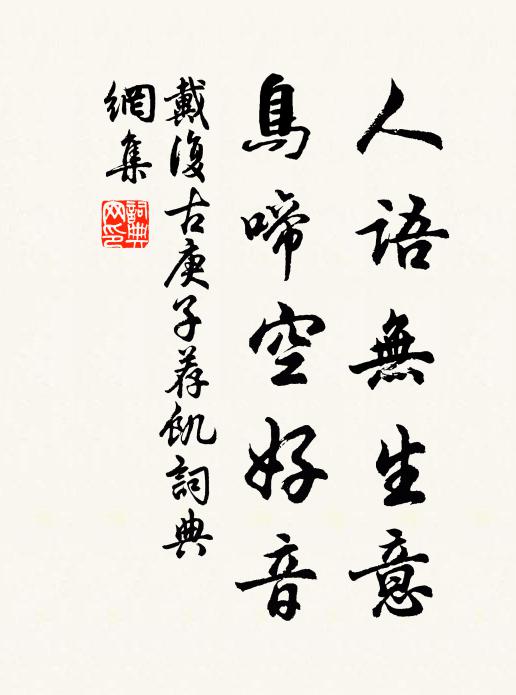 人語無生意
鳥啼空好音
戴復古庚子荐飢詞典
網集
詞典
网印